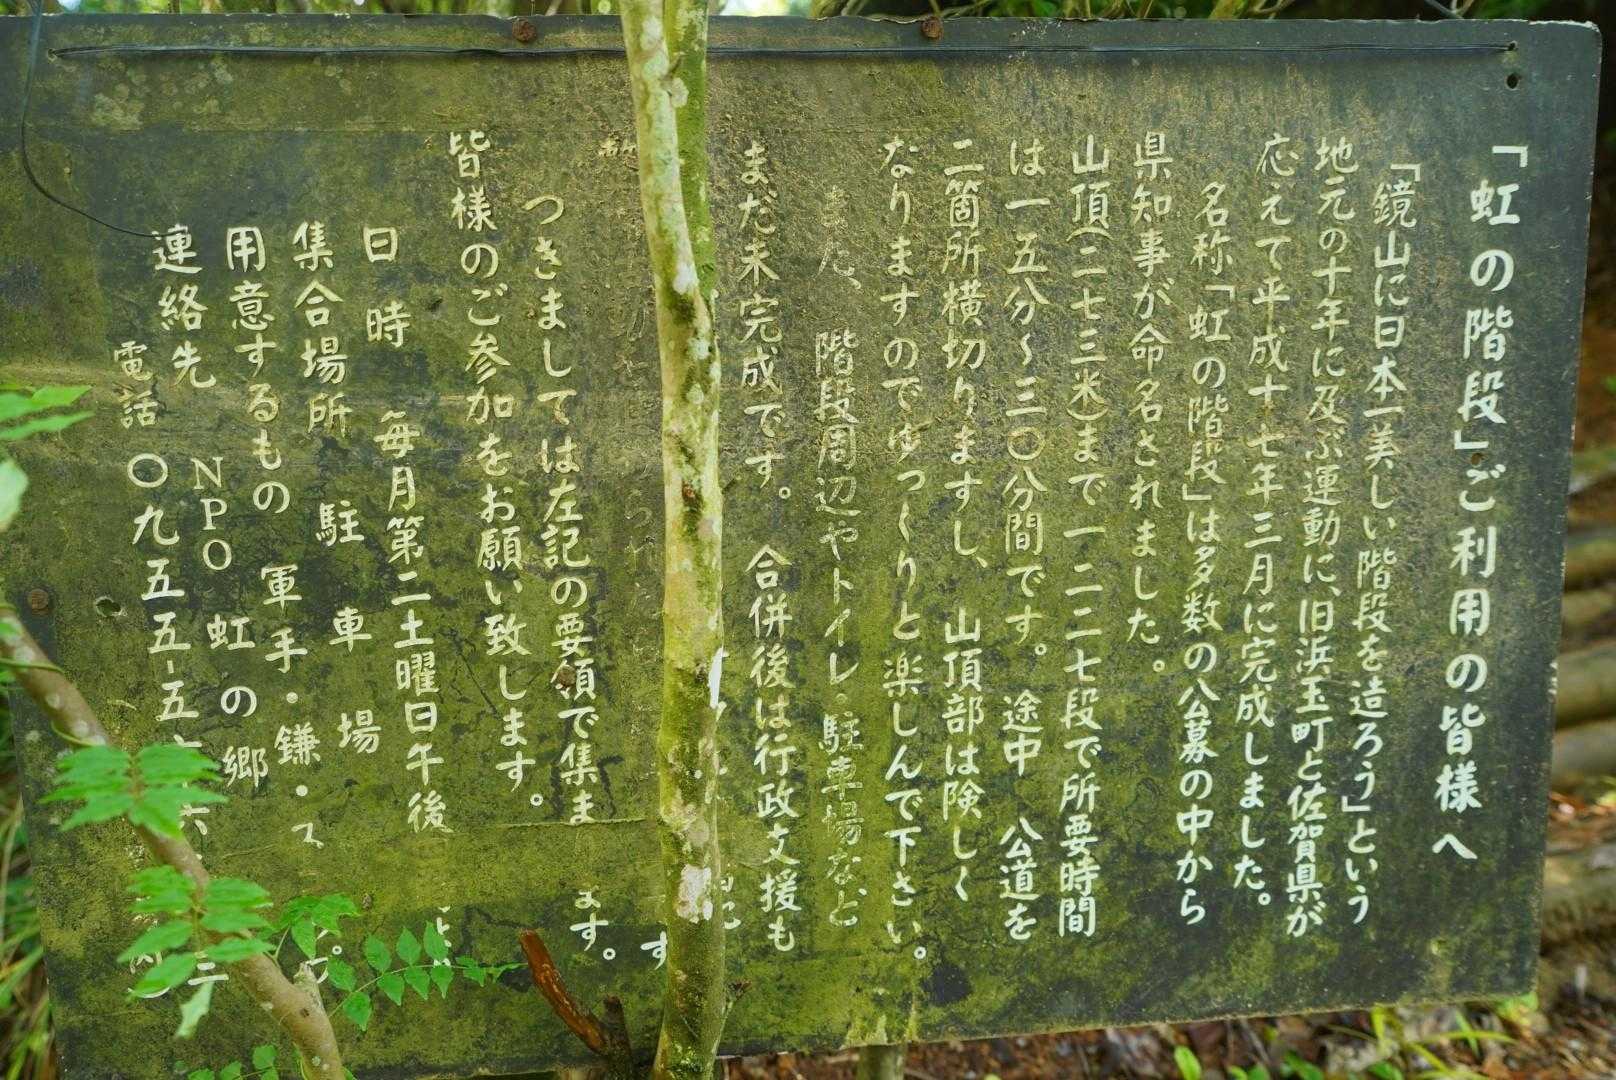 「虹の階段」ご利用の皆様へ
「鏡山に日本一美しい階段を造ろう」という
地元の十年に及ぶ運動に、旧浜玉町と佐賀県が
応えて平成十七年三月に完成しました。
名称「虹の階段」は多数の公募の中から
県知事が命名されました。
山頂(二七三米)まで一二二七段で所要時間
は一五分〜三〇分間です。途中 公道を
二箇所横切りますし、 山頂部は険しく
なりますのでゆっくりと楽しんで下さい。
また、 階段周辺やトイレ・駐車場など
まだ未完成です。 合併後は行政支援も
つきましては左記の要領で集ま ます。
皆様のご参加をお願い致します。
日時 毎月第二土曜日午後
集合場所 駐車場
用意するもの 軍手・鎌・ス
連絡先 NPO 虹の郷
電話 〇九五五-五